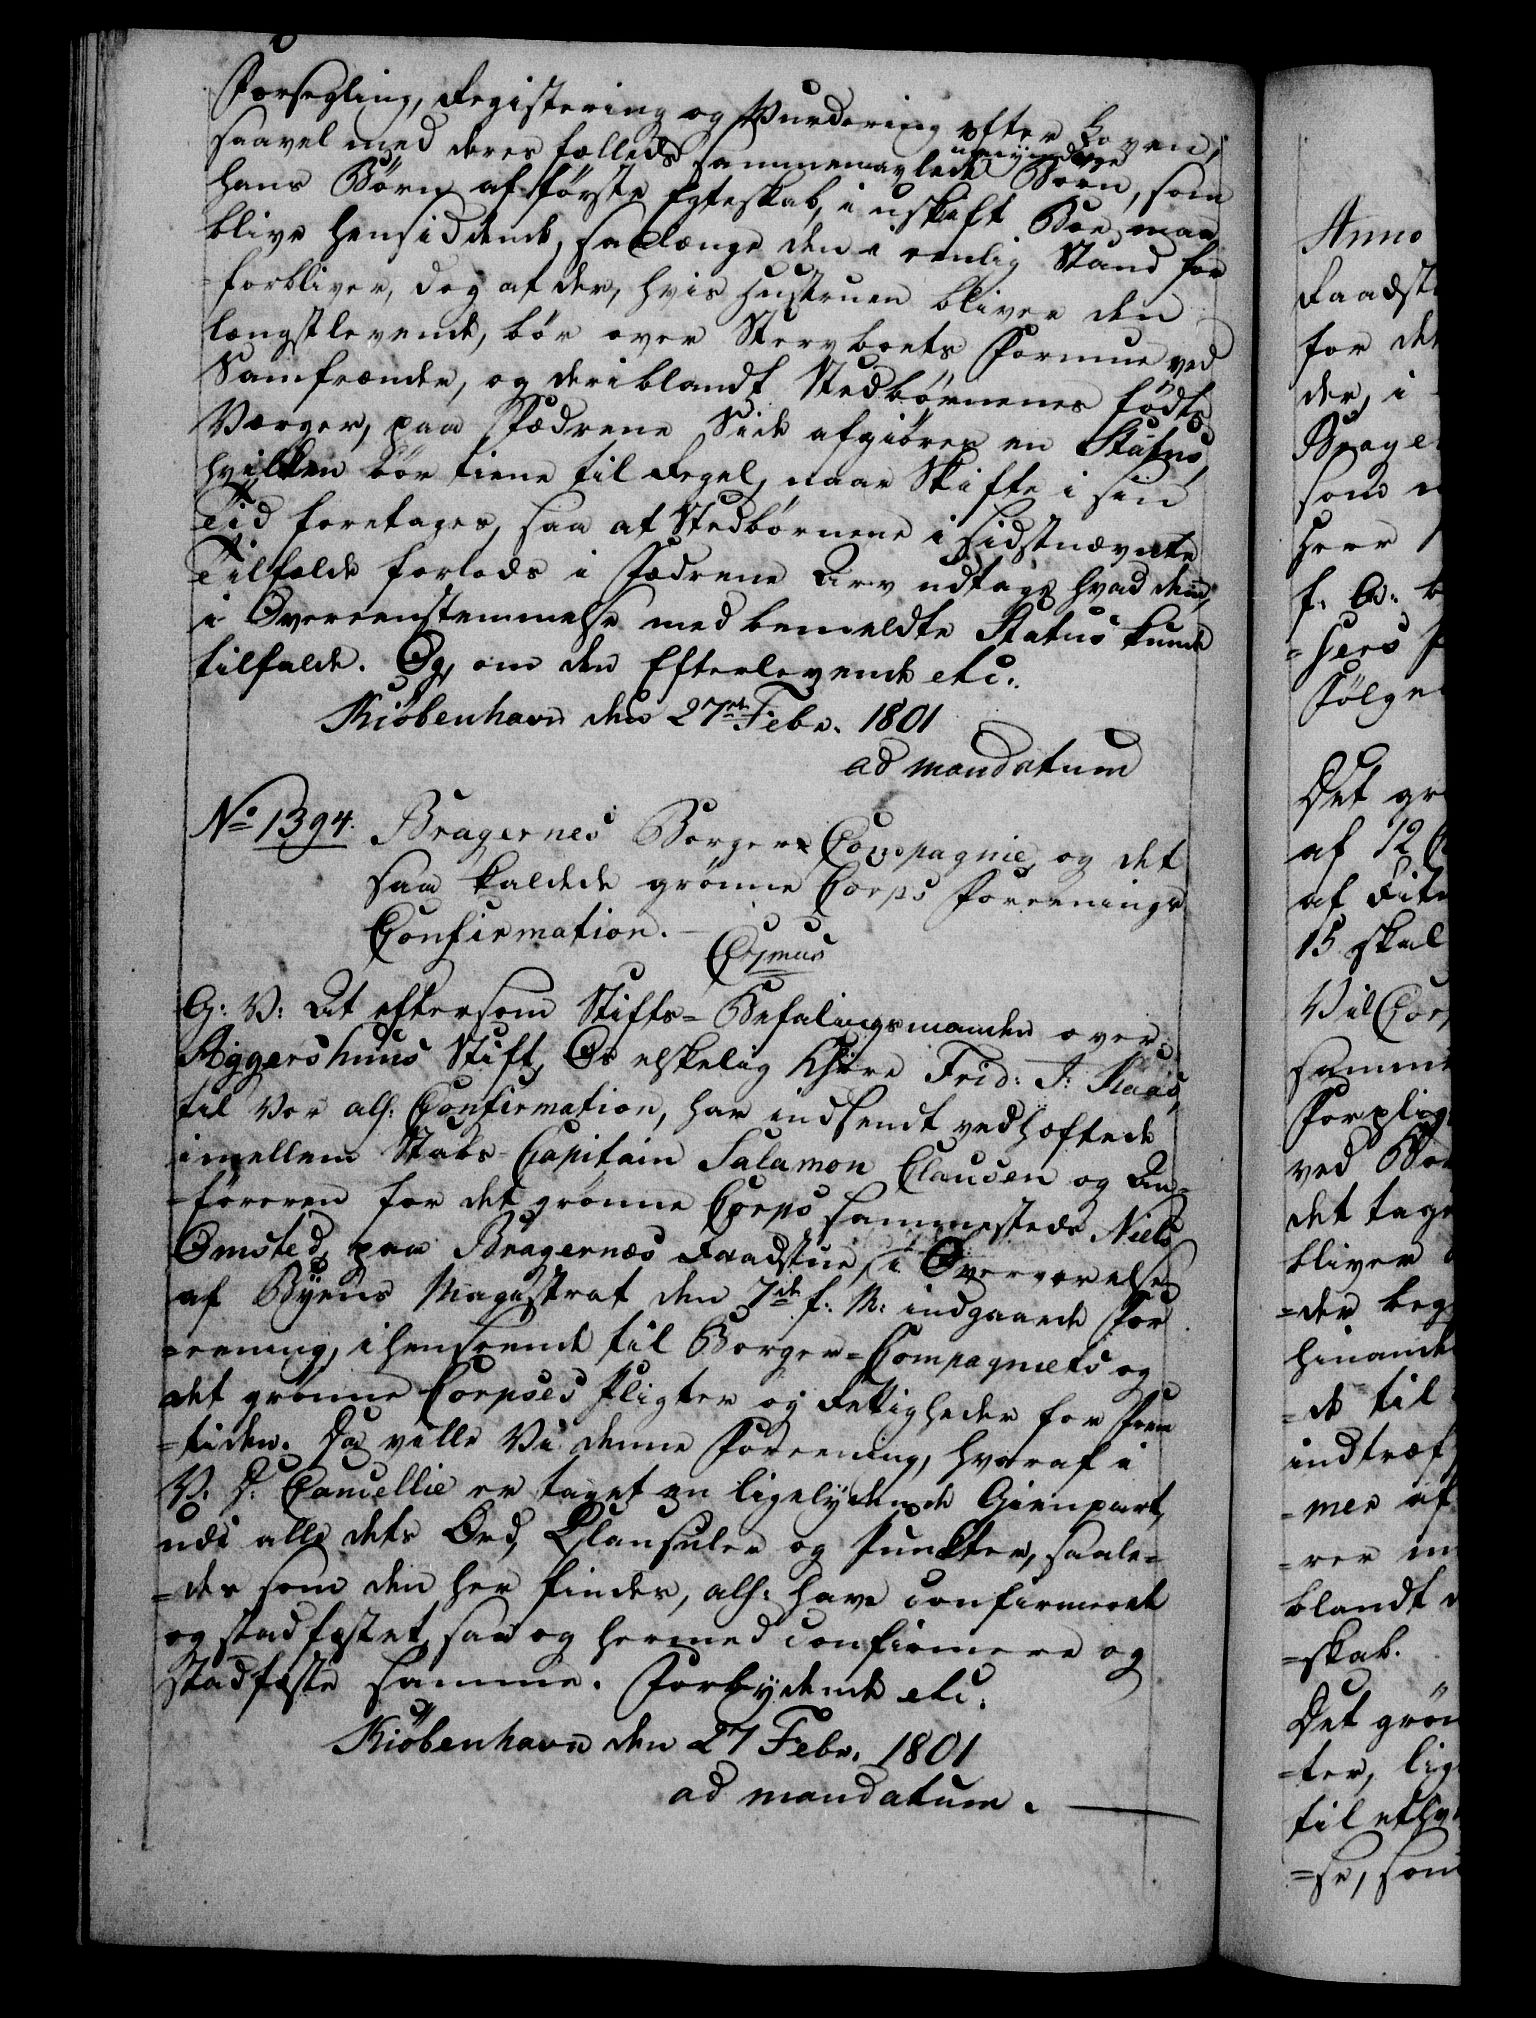 Forsegling, Registering og Vurdering efter Loven,
saavel med deres fælleds sammenavlede umyndige Børn, som
hans Børn af første Egteskab, i uskift Boe maa
blive hensiddende, saalænge den i eenlig Stand for
=forbliver, dog at der, hvis Hustruen bliver den
længstlevende, bør over Stervboets Formue ved
Samfrænder, og deriblandt Stedbørnenes fødte
Værger, paa Fædrene Side afgiøres en Status,
hvilken bør tiene til Regel, naar Skifte i sin
Tid foretages, saa at Stedbørnene i sidstnævnte
Tilfælde forlods i Fædrene Arv udtage hvad dem,
i Overeenstemmelse med bemeldte Status kunde
tilfalde. Og, om den Efterlevende etc.
Kiöbenhavn den 27de Febr. 1801
ad mandatum
No 1394. Bragernes Borger Compagnie og det
saa kaldede grønne Corps Foreenings
Confirmation.
C 7mus
G: V: At eftersom Stifts-Befalingsmanden over
Aggershuus Stift, Os elskelig Hr Frid: J: Kaas,
til Vor alh: Confirmation, har indsendt vedhæftede
imellem Stabs-Capitain Salamon Clausen og An=
=føreren for det grønne Corps sammestede Niels
Omsted, paa Bragernæs Raadstue, i Overværelse
af Byens Magistrat den 7de f: M: indgaaede For
=eening, i henseende til Borger=Compagniets og
det grønne Corpses Pligter og Rettigheder for Frem
=tiden. Da ville Vi denne Foreening, hvoraf i
V. D: Cancellie er taget en ligelydende Gienpart,
udi alle dets Ord, Clausuler og Puncter, saale=
=des som den her findes, alh: have confirmeret
og stadfæstet, saa og hermed confirmere og
stadfæste samme. Forbydende etc.
Kiöbenhavn den 27 Febr. 1801
ad mandatum.
Anno
Raadst
for de
der, i
Brage
som
Herr
f. A:
=sers
Følge
Det gr
af 12
af Rite
15 skal
Vil Cor
samme
Forplig
ved Bo
det tage
bliver
=der beg
hinande
=de til
indtræf
=mer af
=rer
blandt
=skab.
Det grøn
=ter, lig
til ethv
=se, som